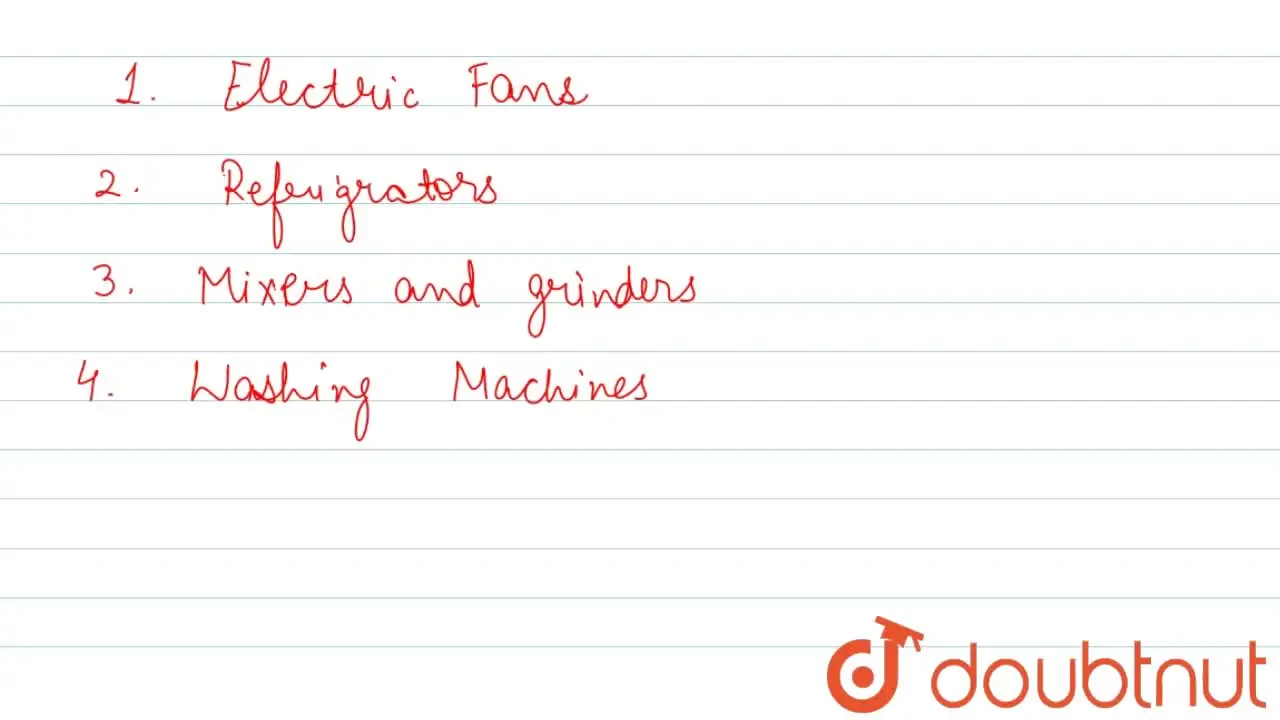 1. Electric Fans
2. Refrigrators
3. Mixers and grinders
4. Washing Machines
doubtnut